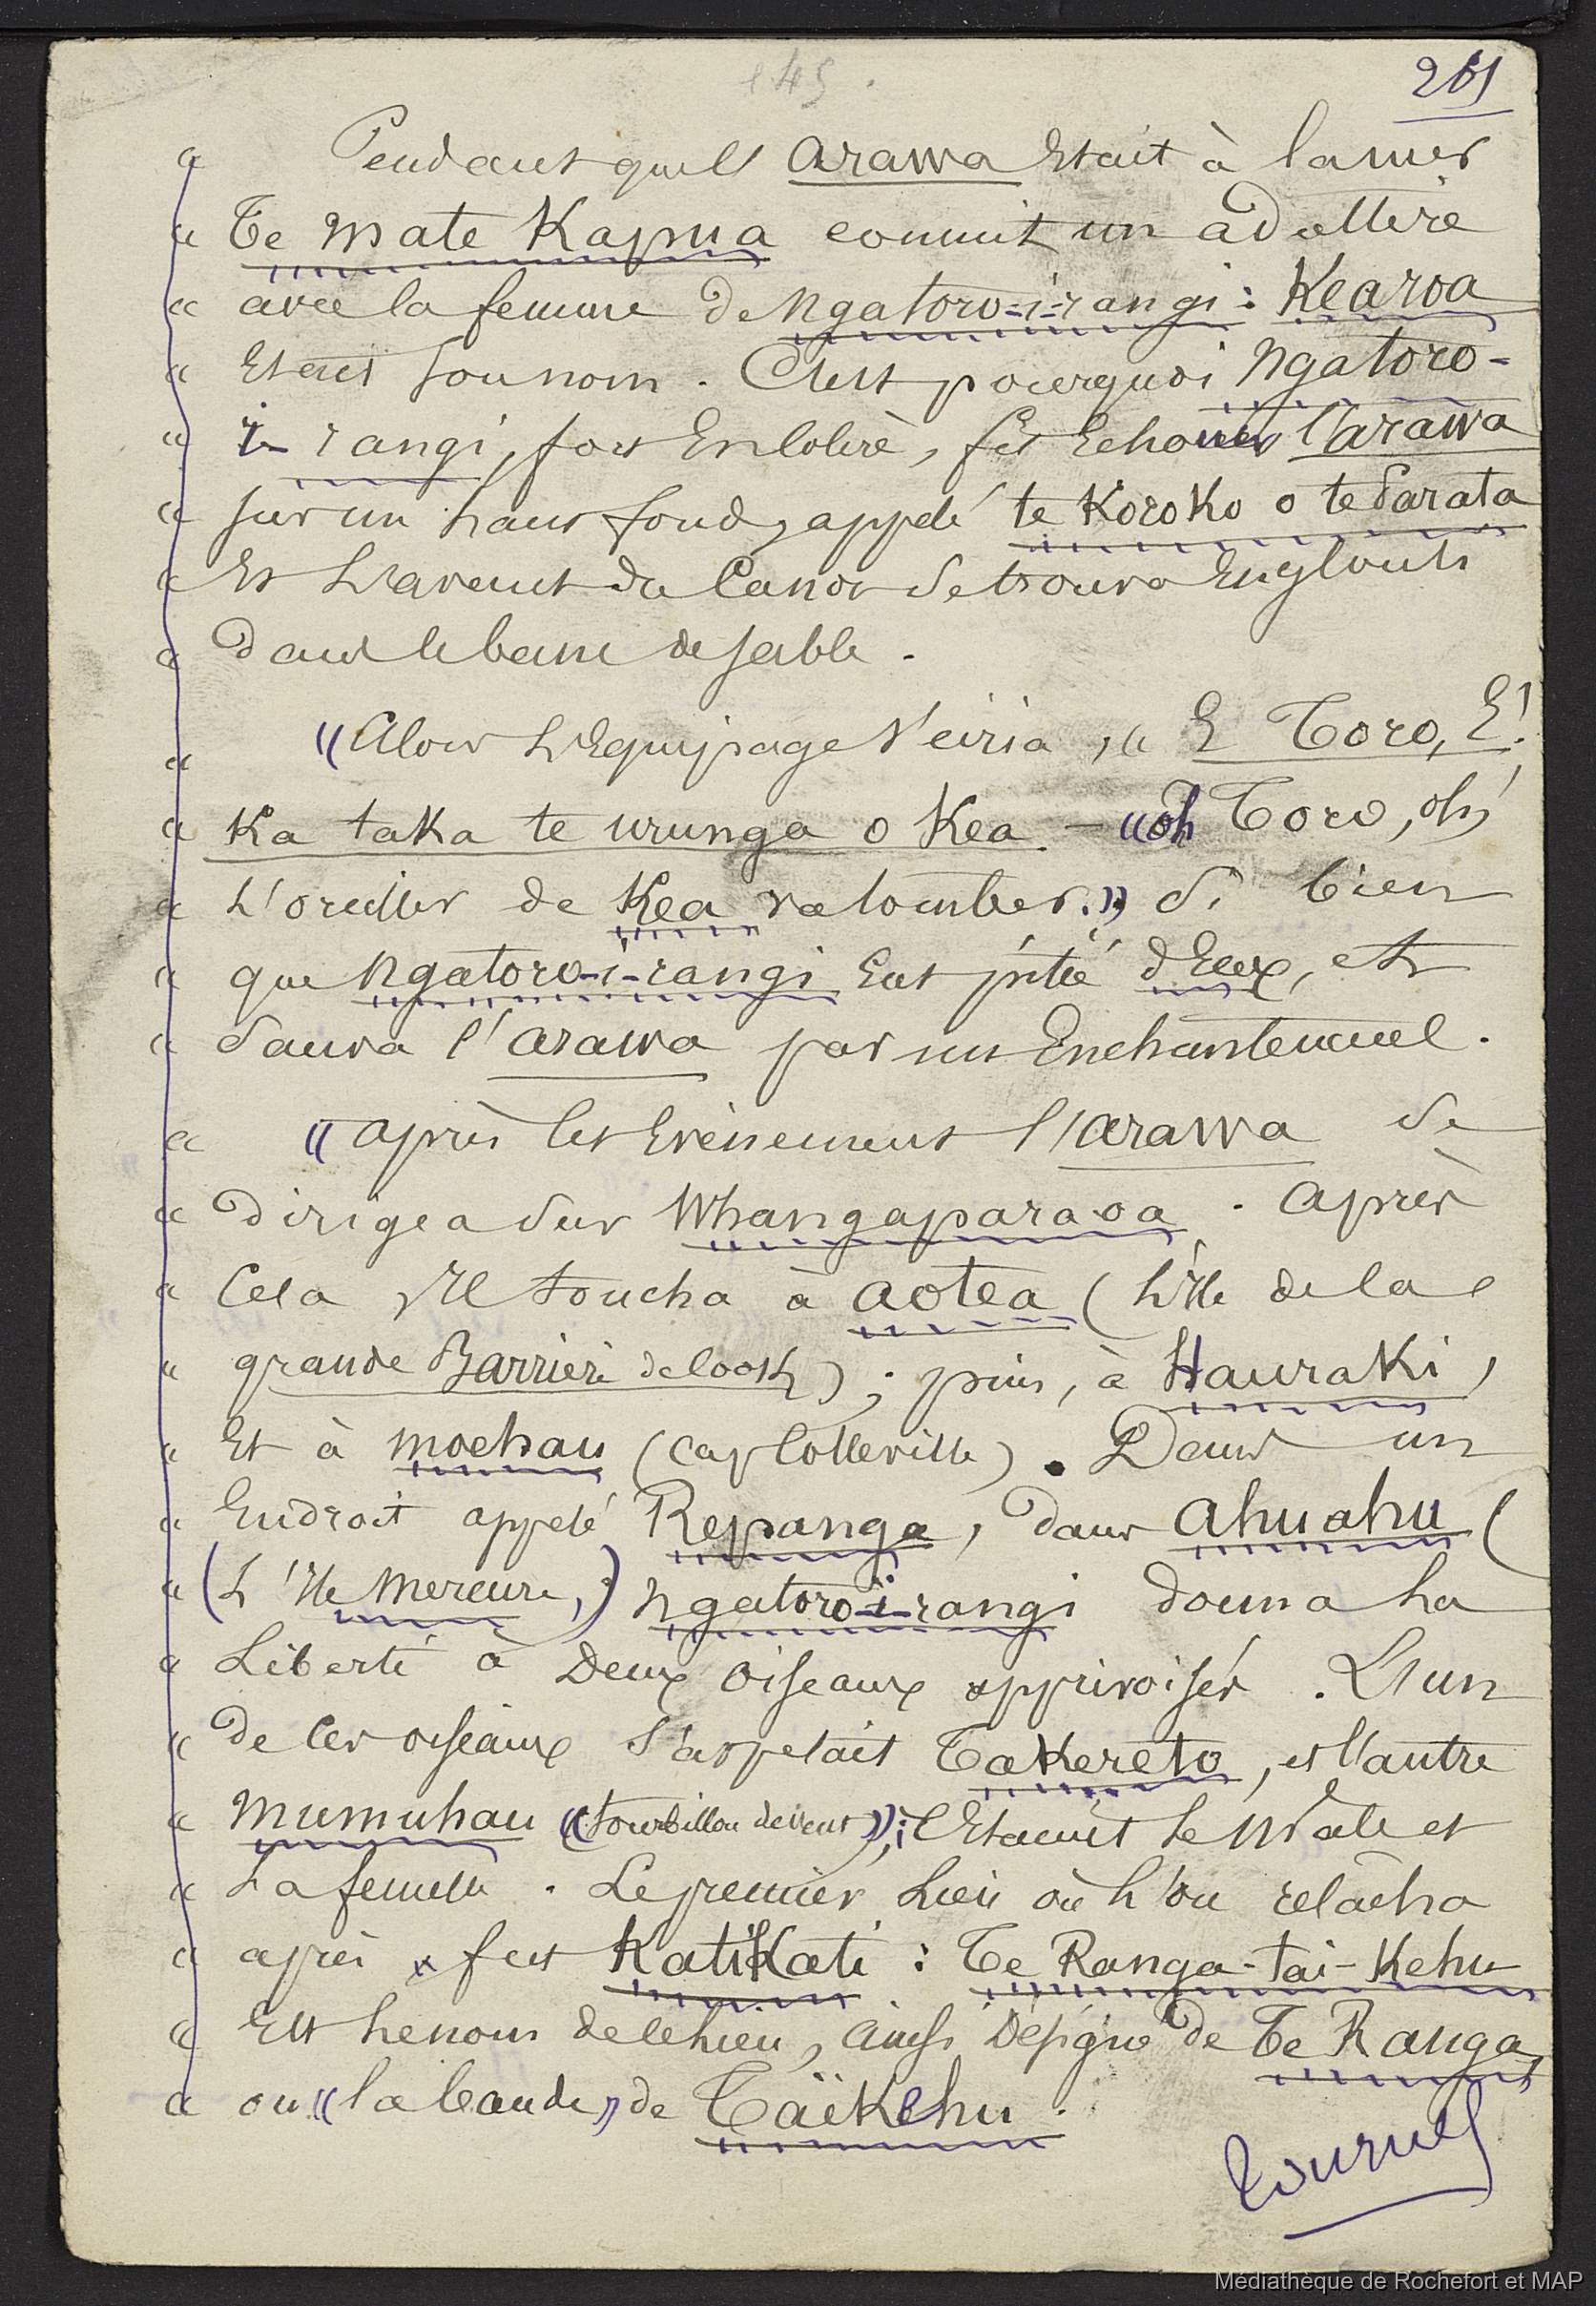 145.
261
« Pendant que l'arawa Etait à la mer
« Te mate Kapua commit un adultère
« avec la femme de Ngatoro-i-rangi : Kearoa
« Etait son nom. C'est pourquoi Ngatoro-
« i-rangi, fort En colère, fit Echouer l'arawa
« sur un haut fond, appelé te Koroko o te Parata
« Et L'avant du Canot se trouva Englouti
« dans le banc de sable.
« « Alors L'Equipage s'écria, « E Toro, E!
« Ka taka te urunga o Kea. – « oh Toro, oh!
« L'oreiller de Kea va tomber. » Si bien
« que Ngatoro-i-rangi Eut pitié d'Eux, et
« Sauva l'arawa par un Enchantement.
« « après cet Evènement l'arawa se
« dirigea sur Whangaparaoa. Après
« Cela, Il toucha à aotea (L'Ile de la
« grande Barrière de Cook) ; puis, à Hauraki,
« Et à moehau (Cap Colleville). Dans un
« Endroit appelé Repanga, dans ahuahu (
« (L'Ile mercure,) Ngatoro-i-rangi donna la
« Liberté à Deux oiseaux apprivoisés. L'un
« de Ces oiseaux s'appelait Takereto, et l'autre
« Mumuhau («tourbillon de vent»); C'Etaient le Mâle et
« La femelle. Le premier Lieu où L'on relâcha
« après fut KatiKati : Te Ranga-tai-Kehu
« Est le nom de ce lieu, ainsi Désigné de Te Ranga,
« ou « la bande » de TaïKehu.
Tournez
Médiathèque de Rochefort et MAP